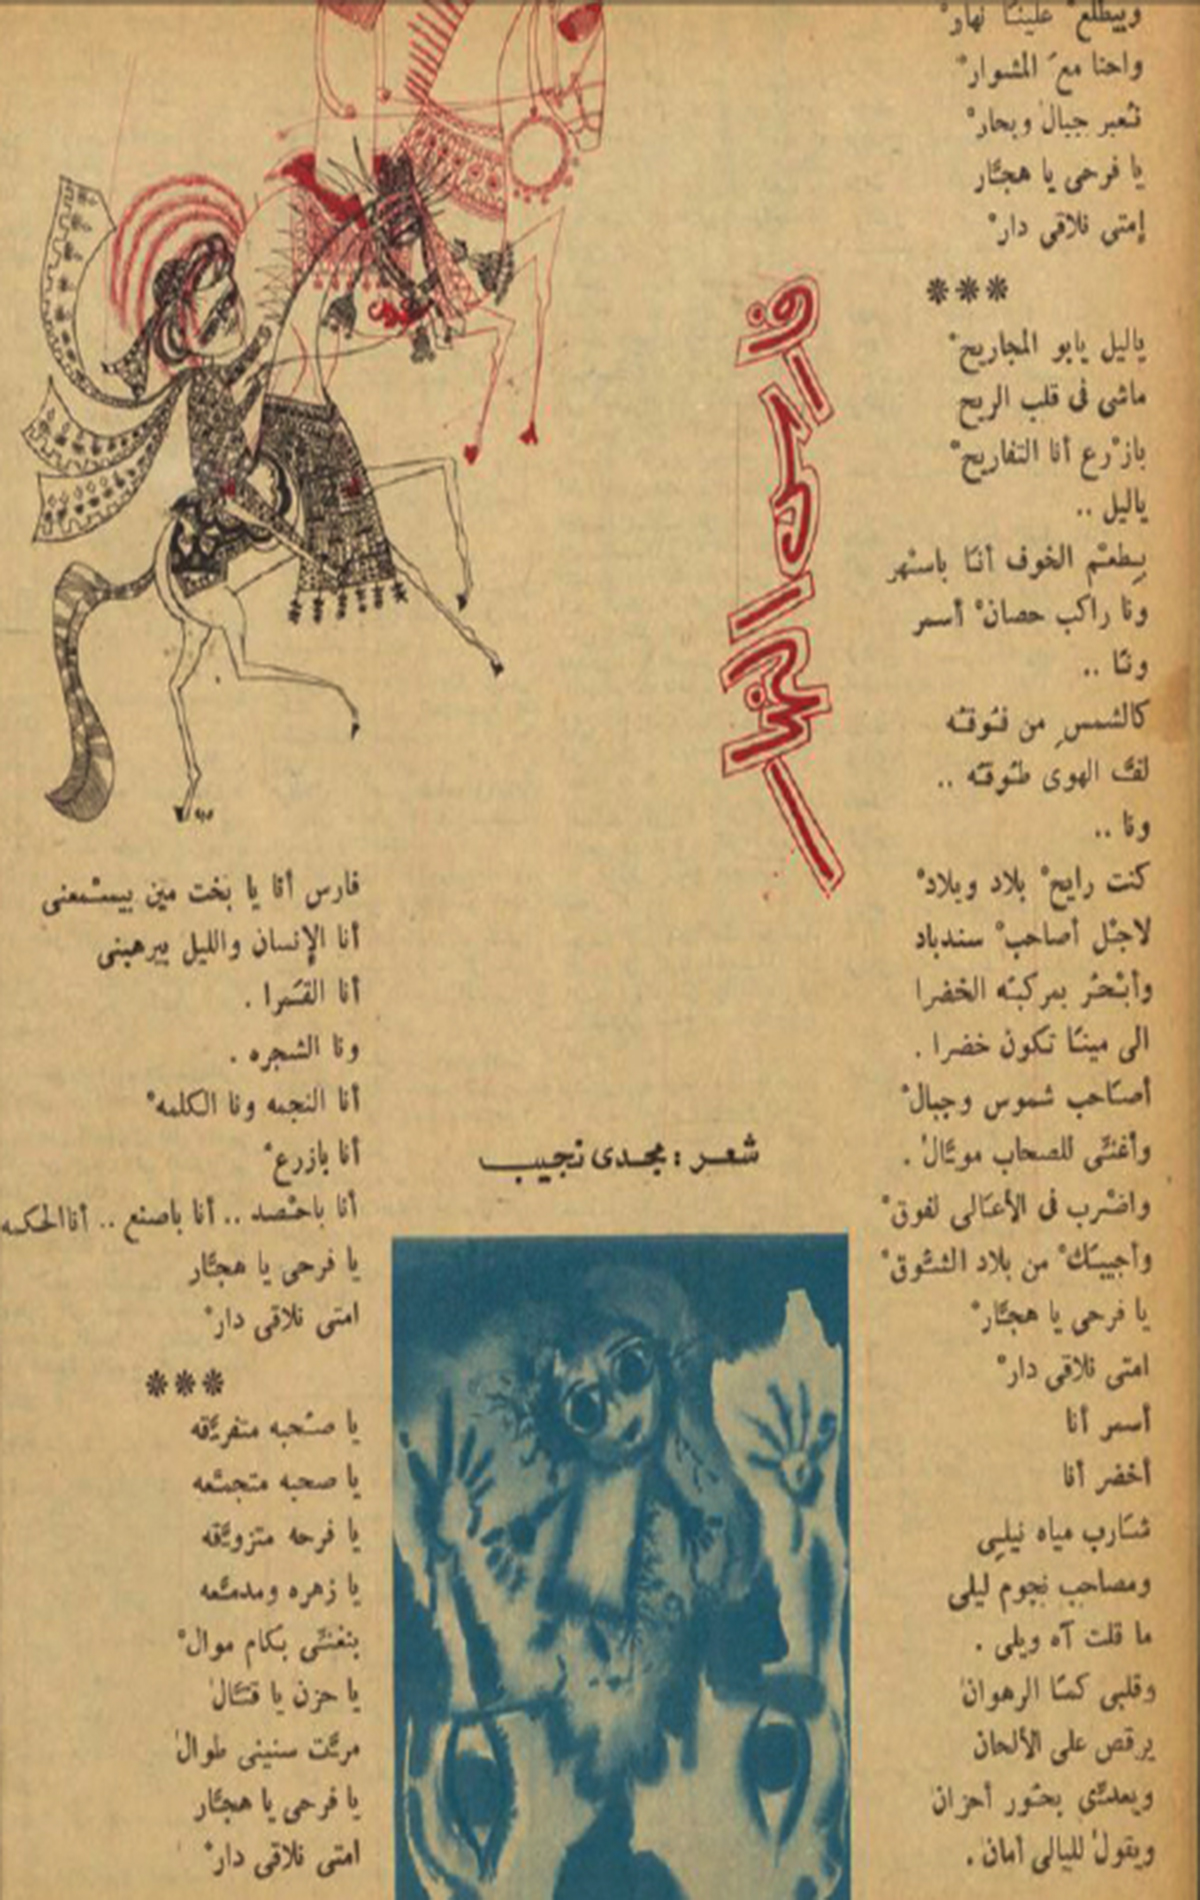 وبيطلع علينا نهار
واحنا مع المشوار
نعبر جبال وبحار
يا فرحى يا هجّار
إمتى نلاقى دار
***
ياليل يابو المجاريح
ماشى فى قلب الريح
بازرع أنا التفاريح
ياليل ..
بطعم الخوف أنا باسهر
ونا راكب حصان أسمر
ونا ..
كالشمس من فوقه
لفّ الهوى طوقه ..
ونا ..
كنت رايح بلاد وبلاد
لاجل أصاحب سندباد
وأبحر بمركبه الخضرا
الى مينا تكون خضرا .
أصاحب شموس وجبال
وأغنّى للصحاب موّال .
واضرب فى الأعالى لفوق
وأجيبك من بلاد الشوق
يا فرحى يا هجّار
امتى نلاقى دار
أسمر أنا
أخضر أنا
شارب مياه نيلى
ومصاحب نجوم ليلى
ما قلت آه ويلى .
وقلبى كما الرهوان
يرقص على الألحان
ويعدّى بحور أحزان
ويقول لليالى أمان .
فارس النهار
شعر : مجدى نجيب
فارس أنا يا بخت مين بيسمعنى
أنا الإنسان والليل بيرهبنى
أنا القمرا .
ونا الشجره .
أنا النجمه ونا الكلمه
أنا بازرع
أنا باحصد .. أنا باصنع .. أنا الحكمه
يا فرحى يا هجّار
امتى نلاقى دار
***
يا صحبه متفرّقه
يا صحبه متجمّعه
يا فرحه متزوّقه
يا زهره ومدمّعه
بنغنّى بكام موال
يا حزن يا قتّال
مرّت سنينى طوال
يا فرحى يا هجّار
امتى نلاقى دار